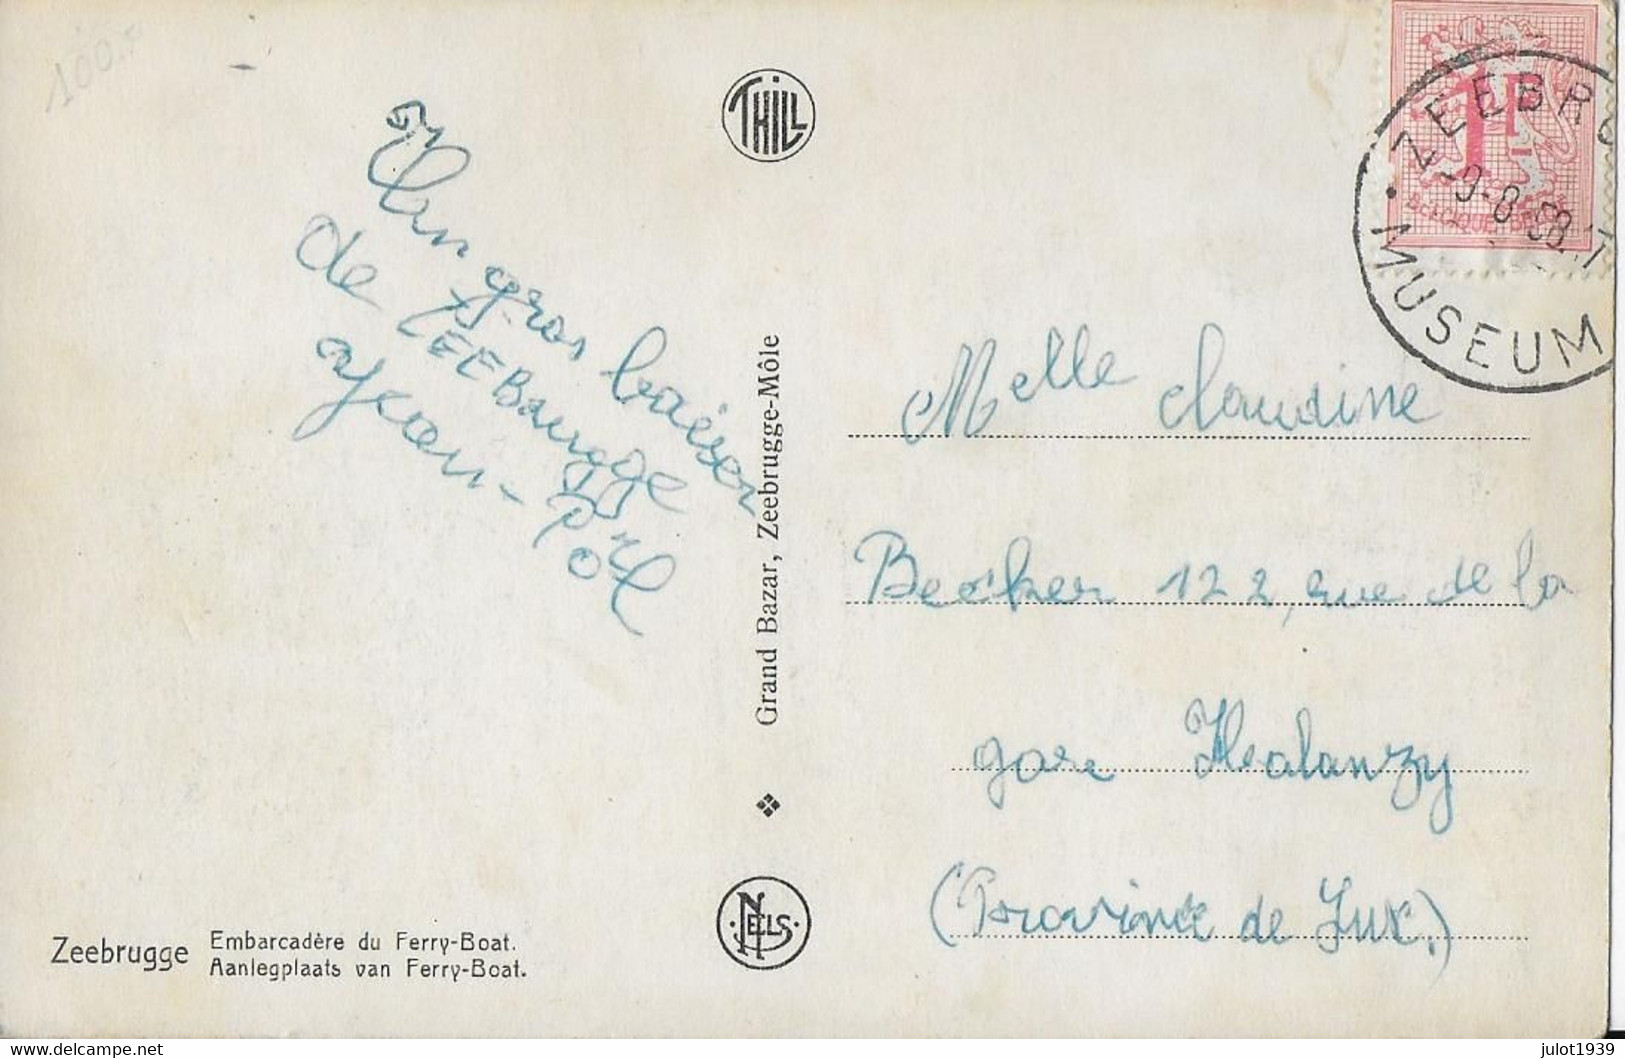 100.-
THILL
Un gros baiser
de ZEEBrugge
Jean-Pol
Grand Bazar, Zeebrugge-Môle
NELS
Zeebrugge
Embarcadère du Ferry-Boat.
Aanlegplaats van Ferry-Boat.
1F
BELGIQUE BELGIE
ZEEBRU
-9-8-58
MUSEUM
Melle Claudine
Becker 122, rue de la
gare Halanzy
(Province de Lux.)
julot1939